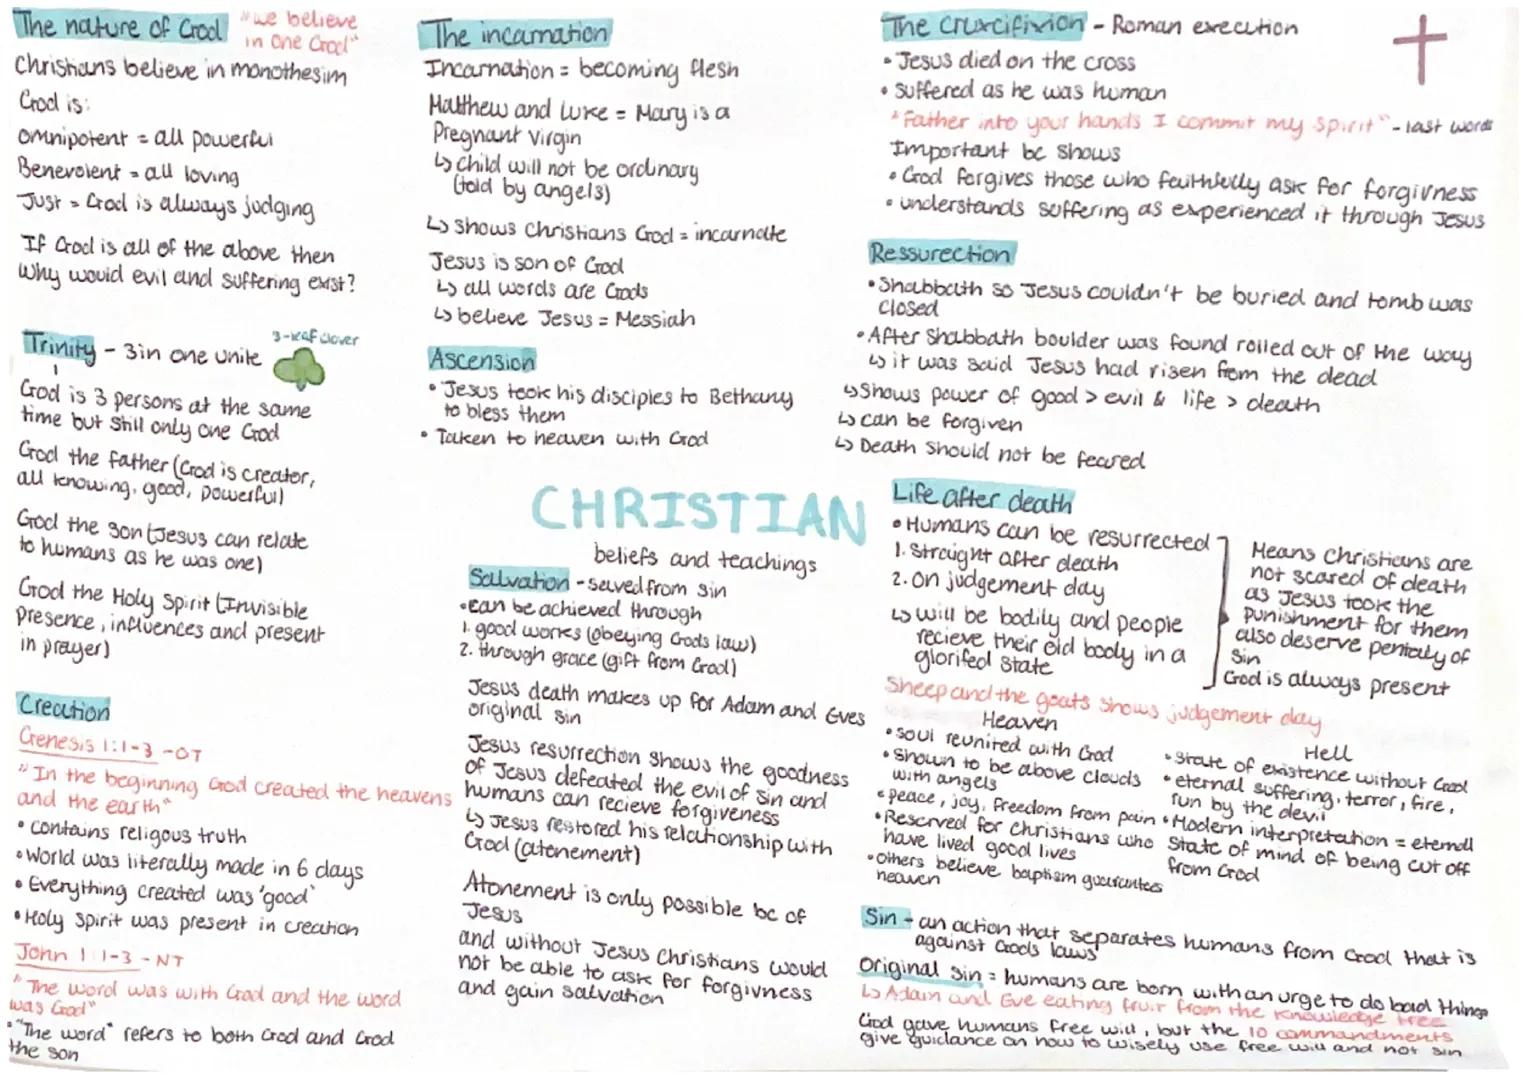 The nature of God
"we believe
in One God"
Christians believe in monothesim
God is:
omnipotent = all powerful
Benevolent = all loving
Just = God is always judging
If God is all of the above then
why would evil and suffering exist?
Trinity - 3 in one unite
3-leaf clover
God is 3 persons at the same
time but still only one God
God the father (God is creator,
all knowing, good, powerful)
God the son (Jesus can relate
to humans as he was one)
God the Holy Spirit (Invisible
presence, influences and present
in prayer)
Creation
Genesis 1:1-3 - OT
"In the beginning God created the heavens
and the earth"
• contains religous truth
• World was literally made in 6 days
• Everything created was 'good'
• Holy Spirit was present in creation
John 1:1-3 - NT
"The word was with God and the word
was God"
• "The word" refers to both God and God
the son
The incarnation
Incarnation = becoming flesh
Matthew and Luke = Mary is a
Pregnant virgin
↳ Child will not be ordinary
(told by angels)
↳ Shows Christians God = incarnate
Jesus is son of God
↳ all words are Gods
↳ believe Jesus = Messiah
Ascension
• Jesus took his disciples to Bethany
to bless them
• Taken to heaven with God
CHRISTIAN
beliefs and teachings
Salvation - saved from sin
• can be achieved through
1. good works (obeying Gods law)
2. through grace (gift from God)
Jesus death makes up for Adam and Eves
original sin
Jesus resurrection shows the goodness
of Jesus defeated the evil of sin and
humans can recieve forgiveness
↳ Jesus restored his relationship with
God (atonement)
Atonement is only possible bc of
Jesus
and without Jesus Christians would
not be able to ask for forgivness
and gain salvation
The Cruxcifixion - Roman execution
• Jesus died on the cross
• suffered as he was human
"Father into your hands I commit my spirit" - last words
Important bc shows
• God forgives those who faithfully ask for forgivness
• understands suffering as experienced it through Jesus
Ressurection
• Shabbath so Jesus couldn't be buried and tomb was
closed
• After Shabbath boulder was found rolled out of the way
↳ it was said Jesus had risen from the dead
↳ Shows power of good > evil & life > death
↳ can be forgiven
↳ Death should not be feared
Life after death
• Humans can be resurrected
1. Straight after death
2. on judgement day
↳ will be bodily and people
recieve their old body in a
glorifed state
Means Christians are
not scared of death
as Jesus took the
punishment for them
also deserve penialy of
sin
God is always present
Sheep and the goats shows judgement day
Heaven
• Soul reunited with God
• Shown to be above clouds
with angels
• peace, joy, freedom from pain
• Reserved for Christians who
have lived good lives
• others believe baptism guarantees
heaven
Hell
• State of existence without God
• eternal suffering, terror, fire,
run by the devil
• Modern interpretation = eternal
State of mind of being cut off
from God
Sin - an action that separates humans from God that is
against Gods laws
Original sin = humans are born with an urge to do bad things
↳ Adam and Eve eating fruit from the knowledge tree
God gave humans free will, but the 10 commandments
give guidance on how to wisely use free will and not sin